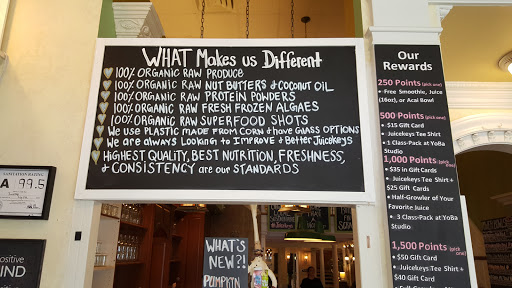 WHAT Makes us Different
100% ORGANIC RAW PRODUCE
100% ORGANIC RAW NUT BUTTERS & COCONUT OIL
100% ORGANIC RAW PROTEIN POWDERS
100% ORGANIC RAW FRESH FROZEN ALGAES
100% ORGANIC RAW SUPERFOOD SHOTS
We use PLASTIC MADE FROM CORN & have GLASS OPTIONS
We are always Looking to IMPROVE & Better Juicekeys
HIGHEST QUALITY, BEST NUTRITION, FRESHNESS,
& CONSISTENCY are our STANDARDS
Our
Rewards
250 Points (pick one)
• Free Smoothie, Juice
(16oz), or Acai Bowl
500 Points (pick one)
• $15 Gift Card
• Juicekeys Tee Shirt
• 1 Class-Pack at YoBa
Studio
1,000 Points (pick one)
• $35 in Gift Cards
• Juicekeys Tee Shirt +
$25 Gift Cards
• Half-Growler of Your
Favorite Juice
• 3 Class-Pack at YoBA
Studio
1,500 Points (pick one)
• $50 Gift Card
• Juicekeys Tee Shirt +
$40 Gift Card
SANITATION RATING
A 99.5
positive
IND
Positive
WHAT'S
NEW?!
PUMPKIN